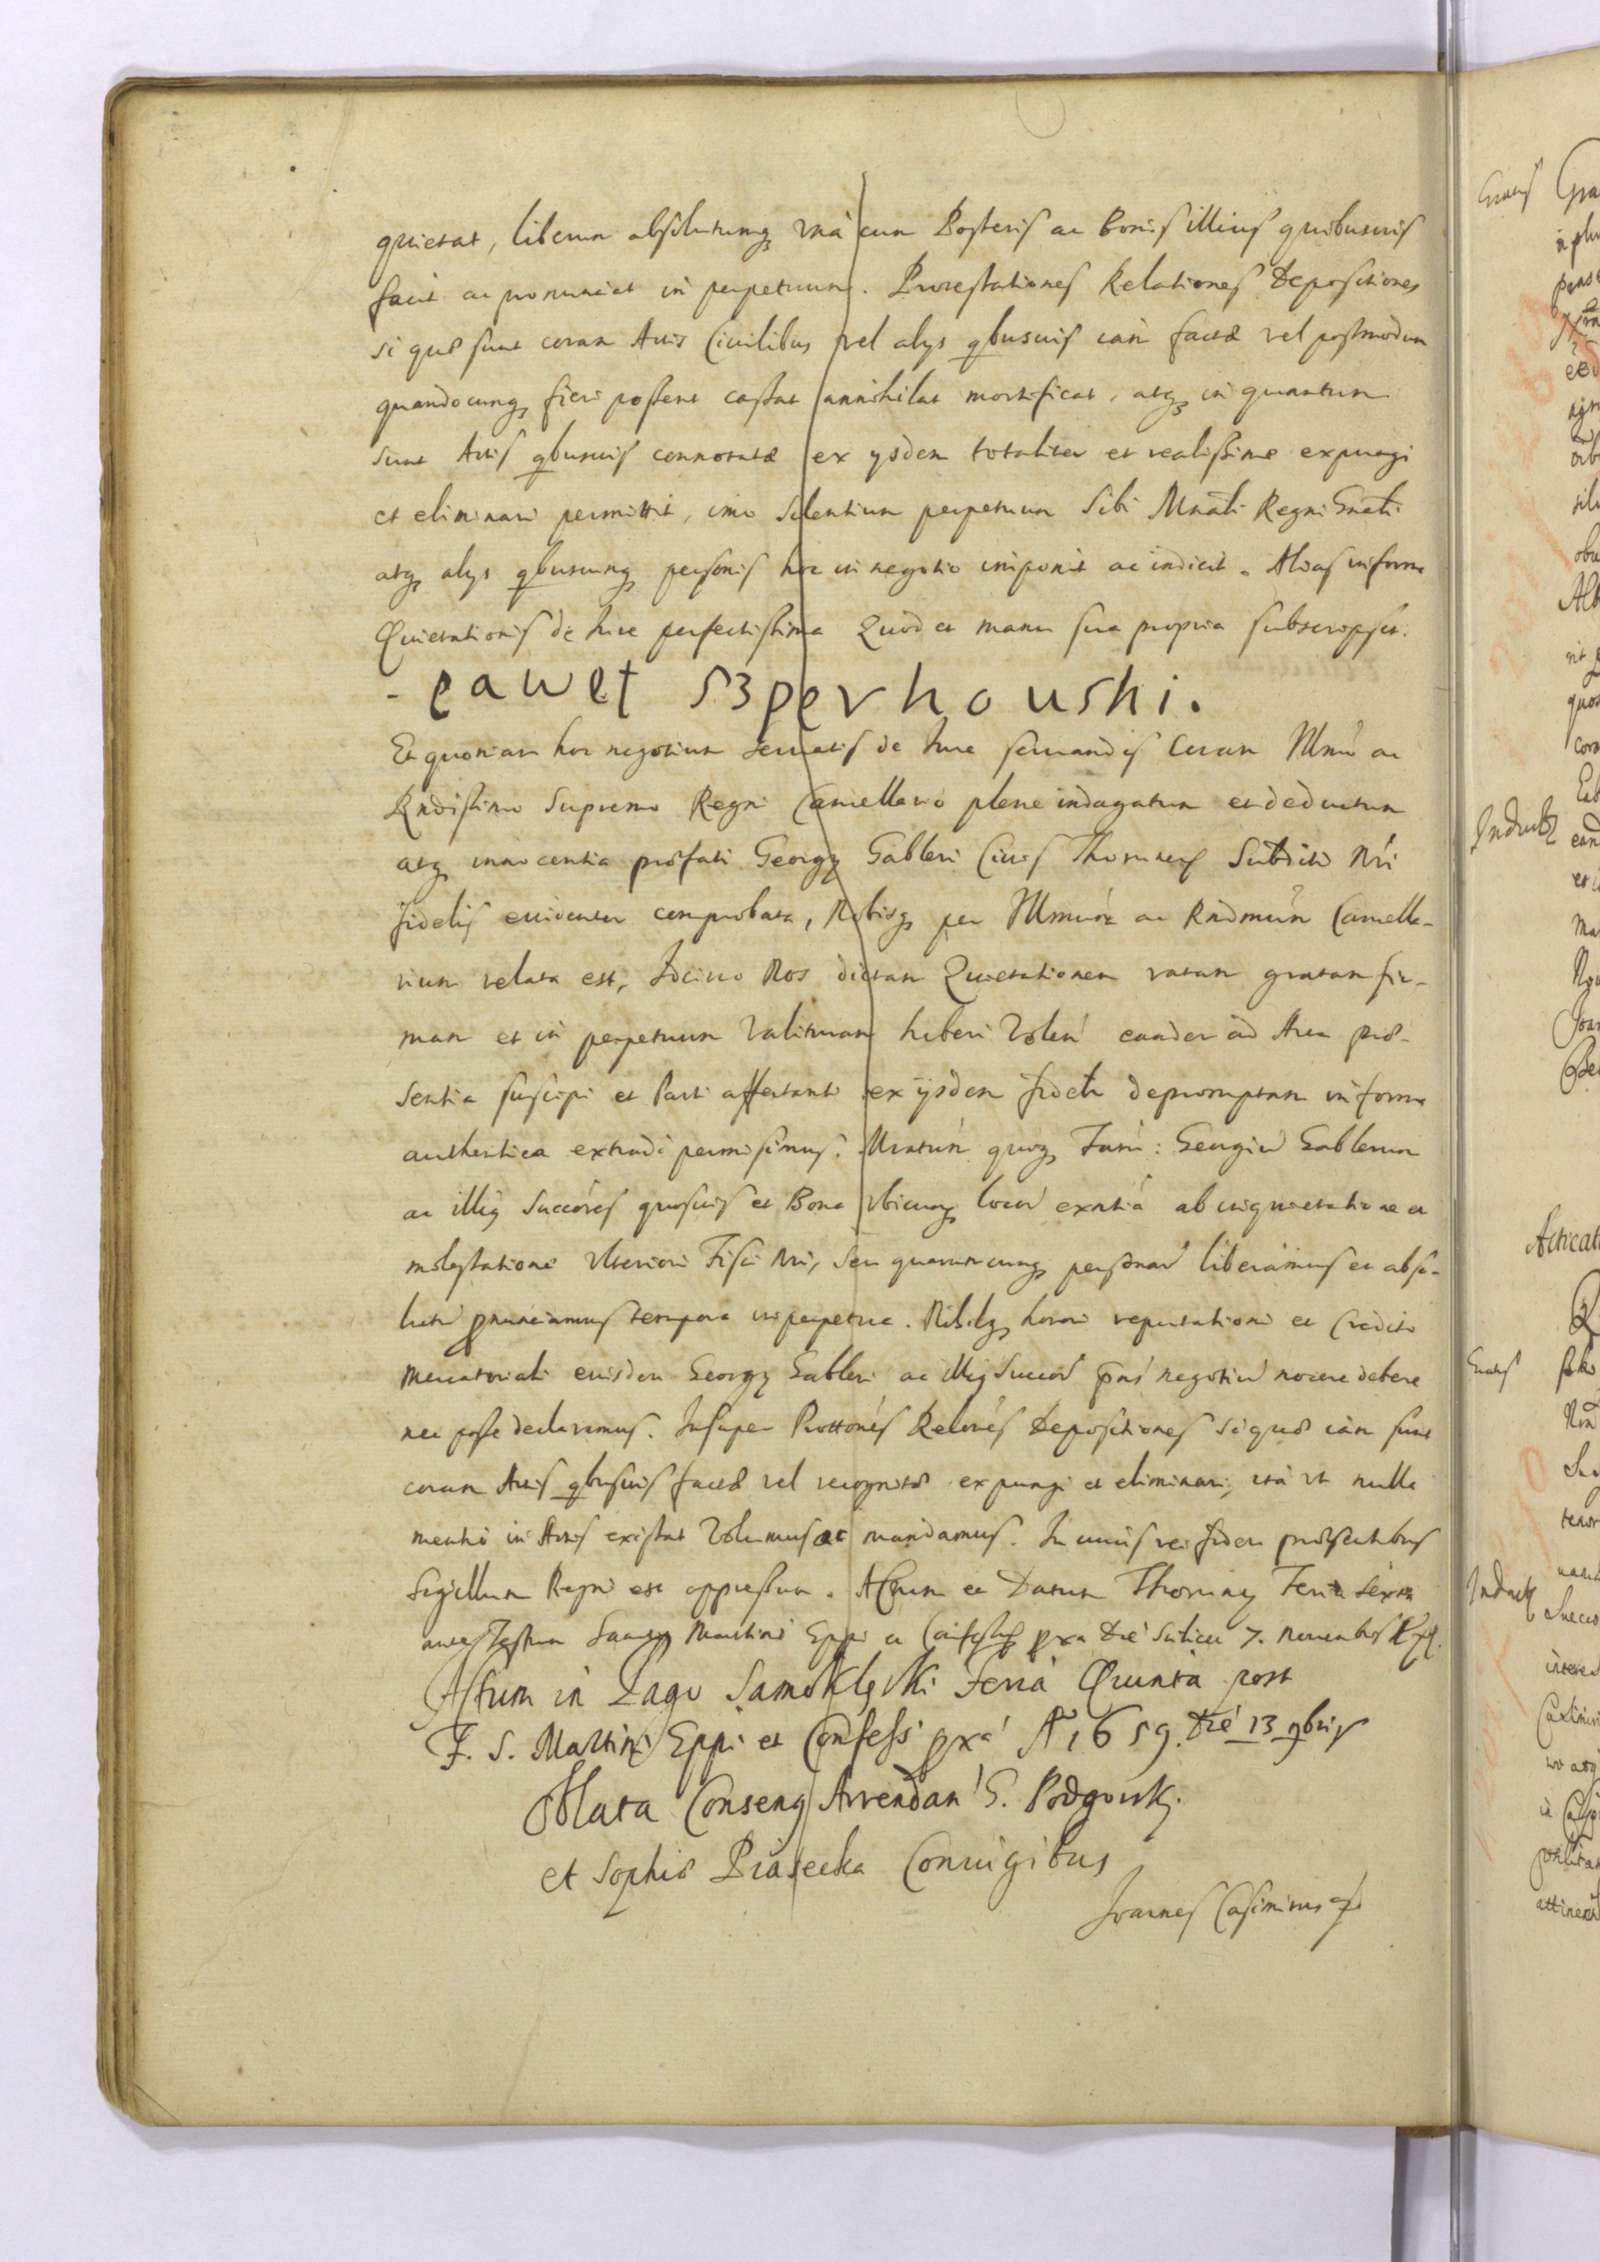 quietat, liberum absolutumq₃ vnà cum Posteris ac Bonis illius quibusuis
facit ac pronunciat in perpetuum. Protestationes Relationes Depositiones
si quæ sunt coram Actis Ciuilibus vel alys qbusuis iam factæ vel postmodum
quandocunq₃ fieri possent cassat annihilat mortificat, atq₃ in quantum
sunt Actis qbusuis connotatæ ex ysdem totaliter et realissime expungi
et eliminari permittit, imo Silentium perpetuum Sibi Regni
atq₃ alys qbuscunq₃ personis hoc in negotio imponit ac indicit. in forma
Quietationis de Iure perfectissima Quod et manu sua propria subscripsit.
- pawet s3perhouski.
Et quoniam hoc negotium seruatis de Iure seruandis Coram Illmo ac
Rndissimo Supremo Regni Cancellario plene indagatum et deductum
atq₃ innocentia præfati Georgy Gableri Ciuis Thorunen Subditi Nri
fidelis euidenter comprobata, Nobisq₃ per Illmum ac Rndmum Cancella-
rium relata est, Idcirco Nos dictam Quietationem ratam gratam fir-
mam et in perpetuum valituram haberi Volen eandem ad Acta præ-
sentia suscipi et Parti affectanti ex ijsdem fidelr depromptam in forma
authentica extradi permisimus. quoq₃ Georgiu Gablerum
ac illiq Succores quosuis et Bona vbicunq₃ locor exntia ab inquietatione et
molestatione vlteriori Fisci Nri, seu quaruncunq₃ personar liberamus et abso-
lutu pnunciamus tempora in perpetua. Nihilq₃ honori reputationi et Credito
Mercatoriali eiusdem Georgy Gableri ac illiq Succor pns negotiu nocere debere
nec posse declaramus. Insuper Prottones Relones Depositiones si quæ iam sunt
coram Actis qbusuis factæ vel recognitæ expungi et eliminari, ità vt nulla
mentio in Actis existat Volumus ac mandamus. In cuius rei fidem præsentibus
Sigillum Regni est appressum. Actum et Datum Thoruny Feria sexta
ante Festum Sancti Martini Eppi et Confessq pxa Die Scilicet 7. Nouembris
Actum in Pago Samoklęski Feria Quinta post
F. S. Martini Eppi et Confess pxa A 1659. Die 13 9bris
Oblata Conseng Arrendan G. Podgorsky
et Sophiæ Piasecka Coniugibus
Joannes Casimirus